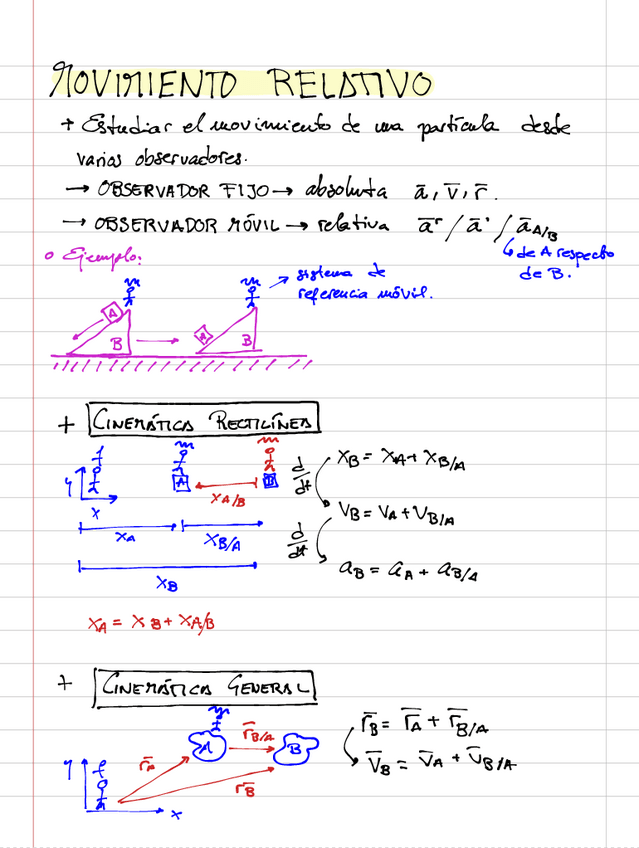 MOVIMIENTO RELATIVO
+ Estudiar el movimiento de una partícula desde
varios observadores.
→ OBSERVADOR FIJO → absoluta a̅, v̅, r̅.
→ OBSERVADOR MÓVIL → relativa a̅ʳ / a̅' / a̅A/B
↳ de A respecto
de B.
o Ejemplo:
m
m
→ sistema de
referencia móvil.
A
B
A
B
+ CINEMÁTICA RECTILÍNEA
f
m
m
y
x
A
B
xA/B
xA
xB/A
xB
d/dt
xB = xA + xB/A
vB = vA + vB/A
d/dt
aB = aA + aB/A
xA = xB + xA/B
+ CINEMÁTICA GENERAL
m
f
y
x
A
B
r̅A
r̅B/A
r̅B
r̅B = r̅A + r̅B/A
v̅B = v̅A + v̅B/A